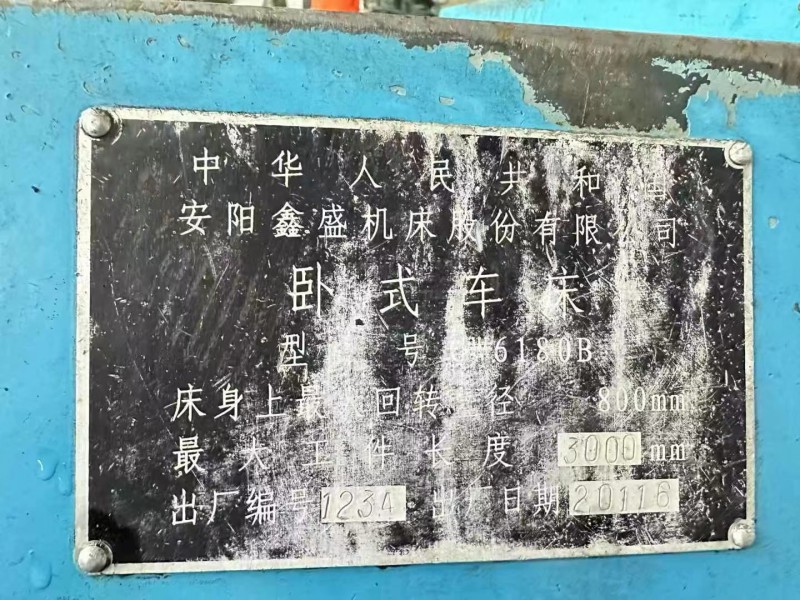 中华人民共和国
安阳鑫盛机床股份有限公司
卧式车床
型 号 6180B
床身上最 回转 径 800mm
最大工件长度 3000 mm
出厂编号 1234 出厂日期 20116